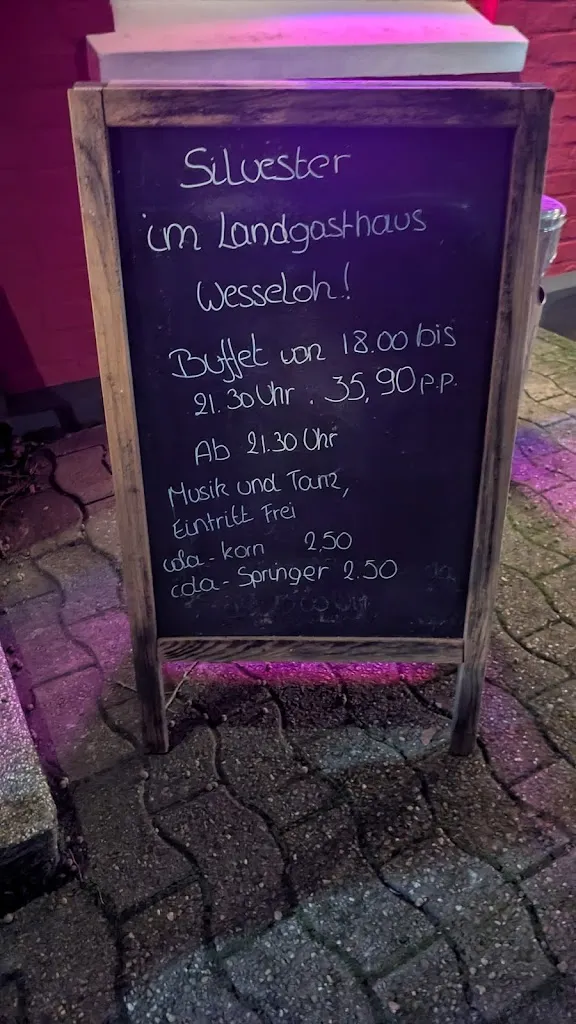 Silvester
im Landgasthaus
Wesseloh!
Buffet von 18.00 bis
21.30 Uhr . 35,90 p.P.
Ab 21.30 Uhr
Musik und Tanz,
Eintritt Frei
cola - korn 2,50
cola - Springer 2.50